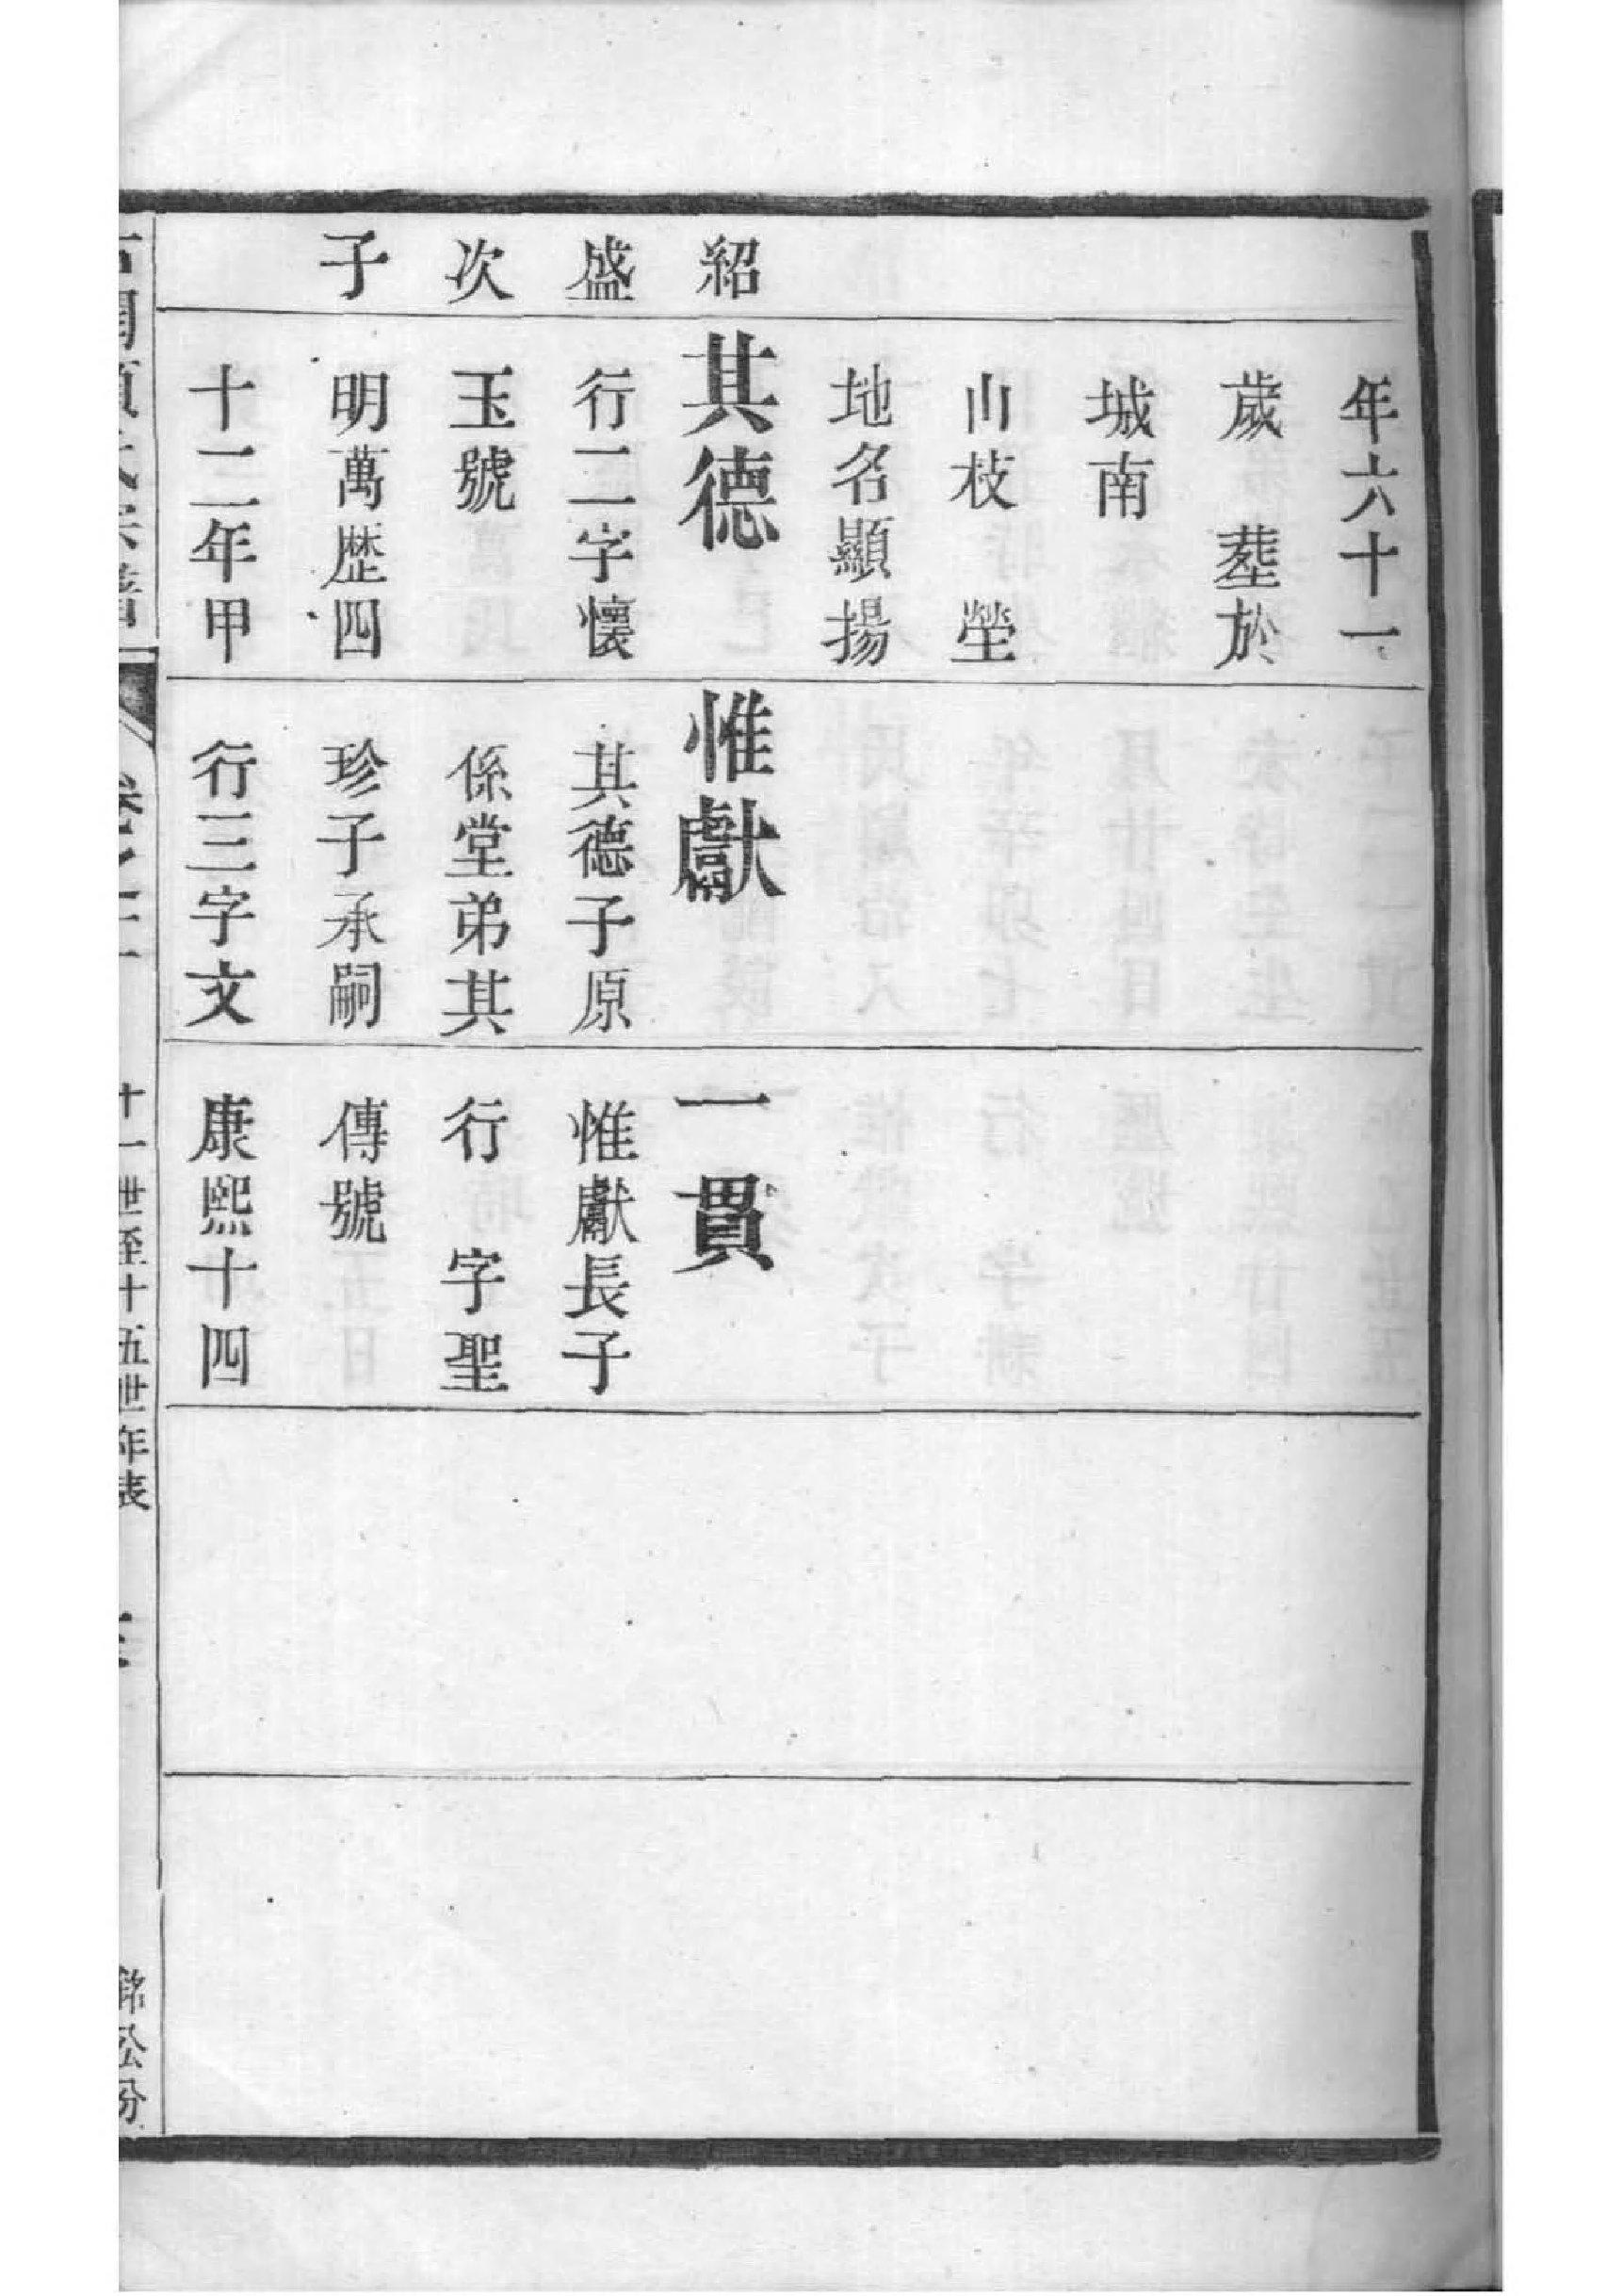 紹
盛
次
子
年六十一
歲　塟於
城南
山枝　塋
地名顯揚
其德
行二字懷
玉號
明萬歴四
十二年甲
惟獻
其德子原
係堂弟其
珍子承嗣
行三字文
一貫
惟獻長子
行　字聖
傳號
康熙十四
卷之
十一世至十五世年表
銘公分